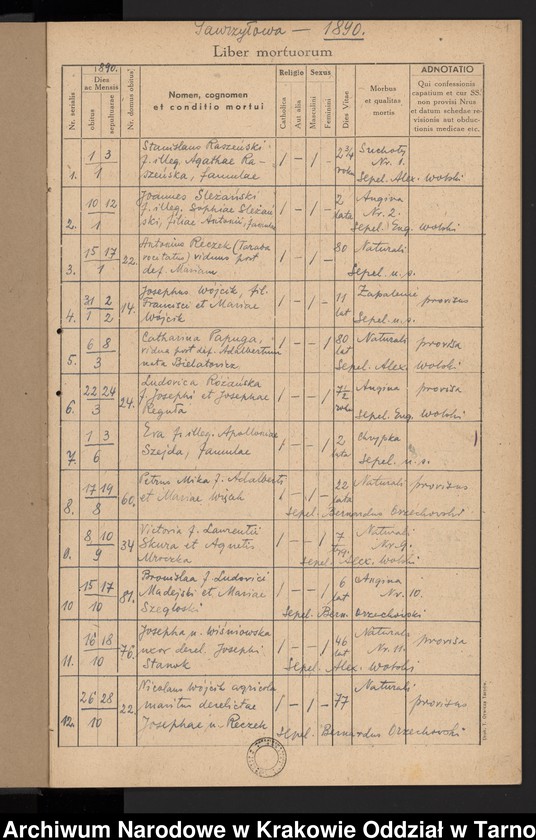 1890.
Liber mortuorum
Nr. serialis
1890.
Dies ac Mensis
obitus
sepulturae
Nr. domus obitus
Nomen, cognomen
et conditio mortui
Religio
Catholica
Aut alia
Sexus
Masculini
Feminini
Dies Vitae
Morbus
et qualitas
mortis
ADNOTATIO
Qui confessionis
capatium et cur SS.
non provisi Nros
et datum schedae re-
visionis aut obduc-
tionis medicae etc.
1. 1 3
1
Stanislaus Raszeński
f. illeg. Agathae Ra-
szeńska, famulae
/ — / — 2 3/4 roku
Suchoty
Nr. 1.
Sepel. Alex. Wolski
2. 10 12
1
Joannes Śleżański
f. illeg. Sophiae Śleżań
ski, filiae Antonii, famulae
/ — / — 2 lata
Angina
Nr. 2.
Sepel. Eug. Wolski
3. 15 17
1
22.
Antonius Reczek
vocitatus) viduus post
def. Mariam
/ — / — 80
Naturali
Sepel. u. s.
4. 31 2
1 2
14.
Josephus Wójcik, fil.
Francisci et Mariae
Wójcik
/ — / — 11 lat
Zapalenie provisus
Sepel. u. s.
5. 6 8
3
Catharina Papuga,
vidua post def. Adalbertum
nata Bielatowicz
/ — — / 80 lat
Naturali provisa
Sepel. Alex. Wolski
6. 22 24
3
24.
Ludovica Różańska
f. Josephi et Josephae
Reguła
/ — — / 7 1/2 roku
Angina provisa
Sepel. Eug. Wolski
7. 1 3
6
Eva f. illeg. Apolloniae
Szejda, famulae
/ — — / 2 lata
Chrypka
Sepel. u. s.
8. 17 19
8
60.
Petrus Mika f. Adalberti
et Mariae
/ — / — 22 lata
Naturali provisus
Sepel. Bernardus Orzechowski
9. 8 10
9
34
Victoria f. Laurentii
Skura et Agnetis
Mroczka
/ — — / 7
Naturali
Nr. 9.
Sepel. Alex. Wolski
10 15 17
10
81.
Bronislaa f. Ludovici
Madejski et Mariae
/ — — / 6 lat
Angina
Nr. 10.
Sepel. Bern. Orzechowski
11. 16 18
10
76.
Josepha n. Wiśniowska
uxor derel. Josephi
Stanok
/ — — / 46 lat
Naturali provisa
Nr. 11.
Sepel. Alex. Wolski
12. 26 28
10
22.
Nicolaus Wójcik agricola
maritus derelictae
Josephae n. Reczek
/ — / — 77
Naturali
provisus
Sepel. Bernardus Orzechowski
Archiwum Narodowe w Krakowie Oddział w Tarno